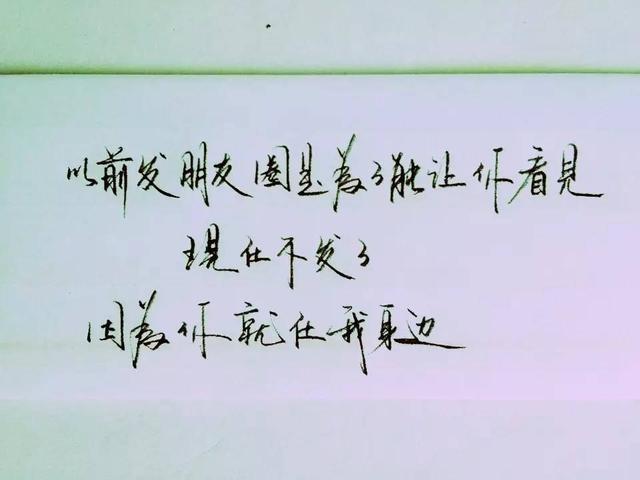 以前发朋友圈是為了能让你看見
現在不发了
因為你就在我身边